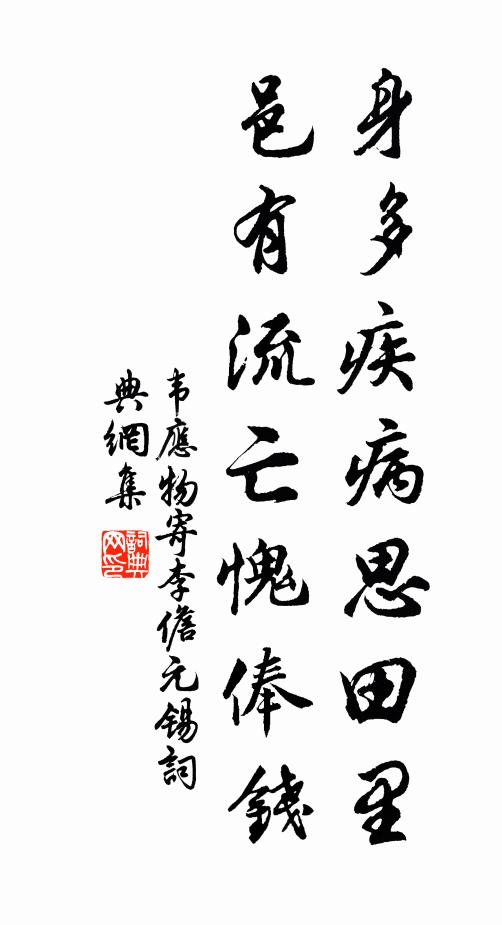 身多疾病思田里
邑有流亡愧俸錢
韦應物寄李儋元锡詞
典網集
詞典
网印